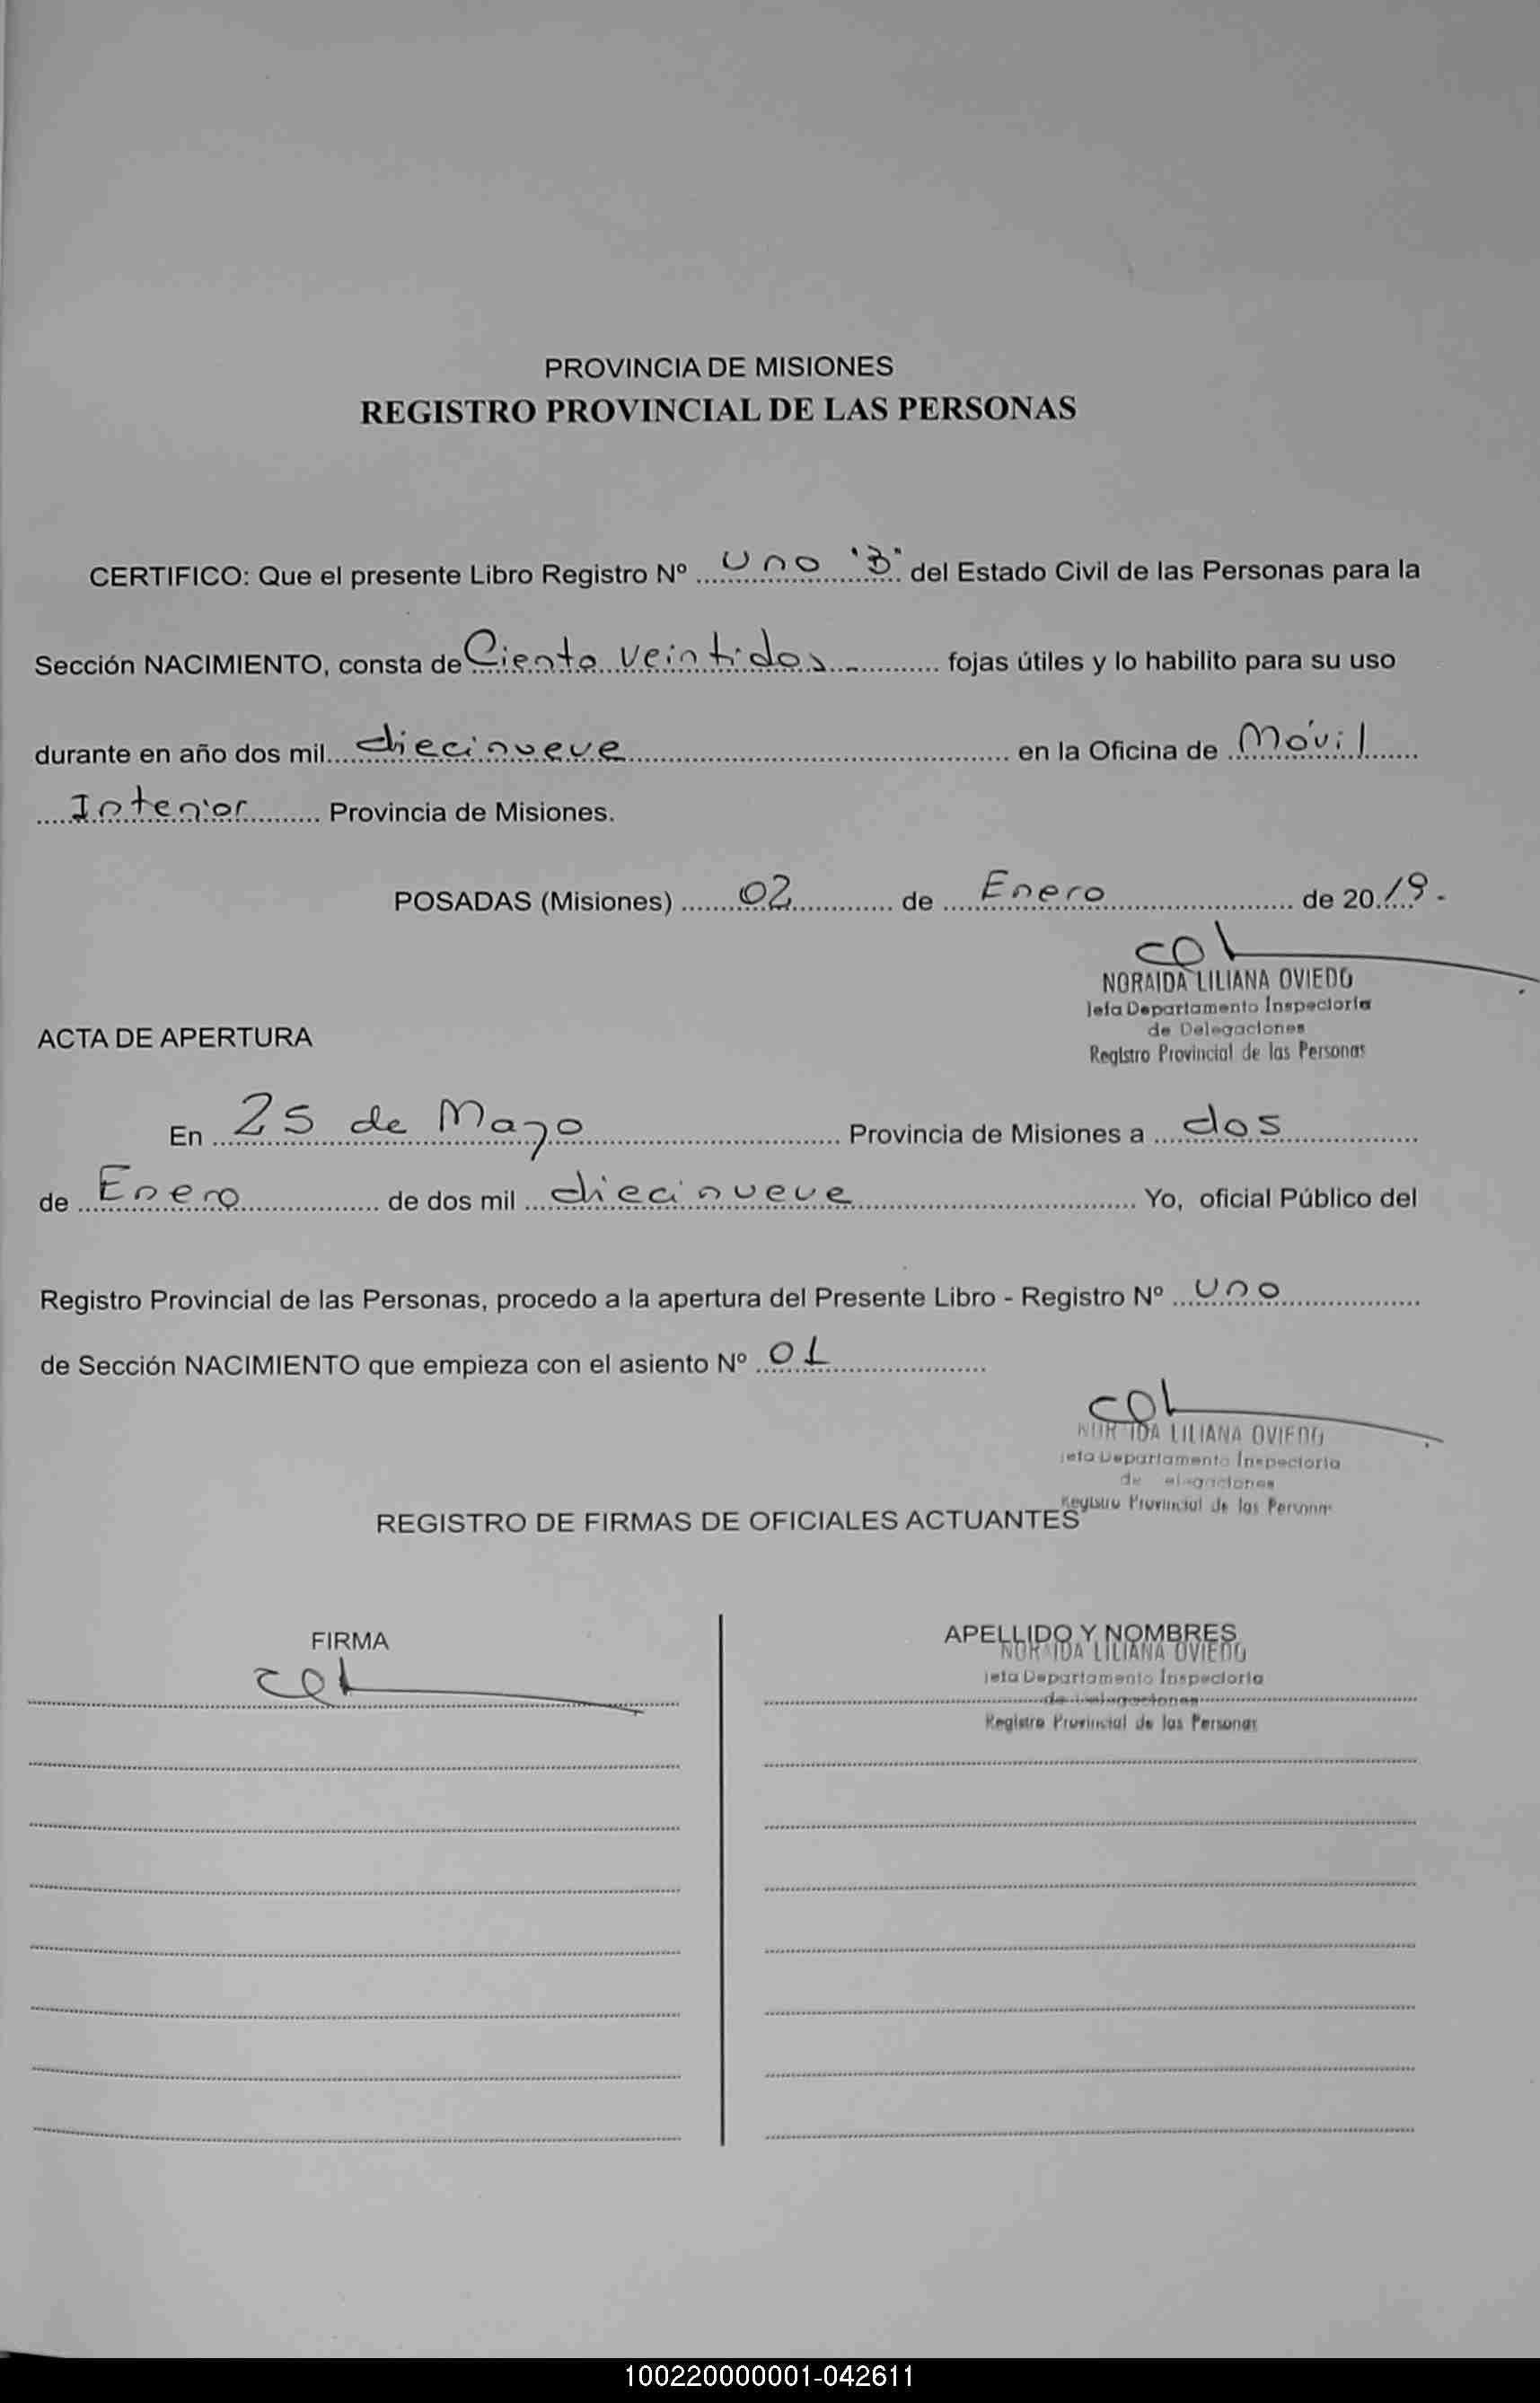 PROVINCIA DE MISIONES
REGISTRO PROVINCIAL DE LAS PERSONAS
CERTIFICO: Que el presente Libro Registro Nº uno "B" del Estado Civil de las Personas para la
Sección NACIMIENTO, consta de Ciento veintidos fojas útiles y lo habilito para su uso
durante en año dos mil diecinueve en la Oficina de Móvil
Interior Provincia de Misiones.
POSADAS (Misiones) 02 de Enero de 2019.-
NORAIDA LILIANA OVIEDO
Jefa Departamento Inspectoria
de Delegaciones
Registro Provincial de las Personas
ACTA DE APERTURA
En 25 de Mayo Provincia de Misiones a dos
de Enero de dos mil diecinueve Yo, oficial Público del
Registro Provincial de las Personas, procedo a la apertura del Presente Libro - Registro Nº uno
de Sección NACIMIENTO que empieza con el asiento Nº 01
NORAIDA LILIANA OVIEDO
Jefa Departamento Inspectoria
de Delegaciones
Registro Provincial de las Personas
REGISTRO DE FIRMAS DE OFICIALES ACTUANTES
FIRMA
APELLIDO Y NOMBRES
NORAIDA LILIANA OVIEDO
Jefa Departamento Inspectoria
de Delegaciones
Registro Provincial de las Personas
100220000001-042611